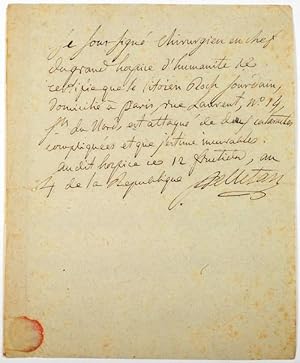 je soussigné chirurgien en chef
du grand hospice d'humanité
certifie que le citoien Roch
domicilié à paris, rue Laurent, n° 14,
du Nord, est attaqué de deux cataractes
compliquées et que j'estime incurables.
audit hospice ce 12 fructidor, an
4 de la Republique Pelletan